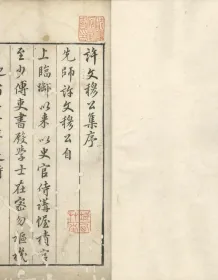 許文穆公集序
先師許文穆公自
上臨御以来以史官侍講幄積官
至少傅吏書殿學士在密勿